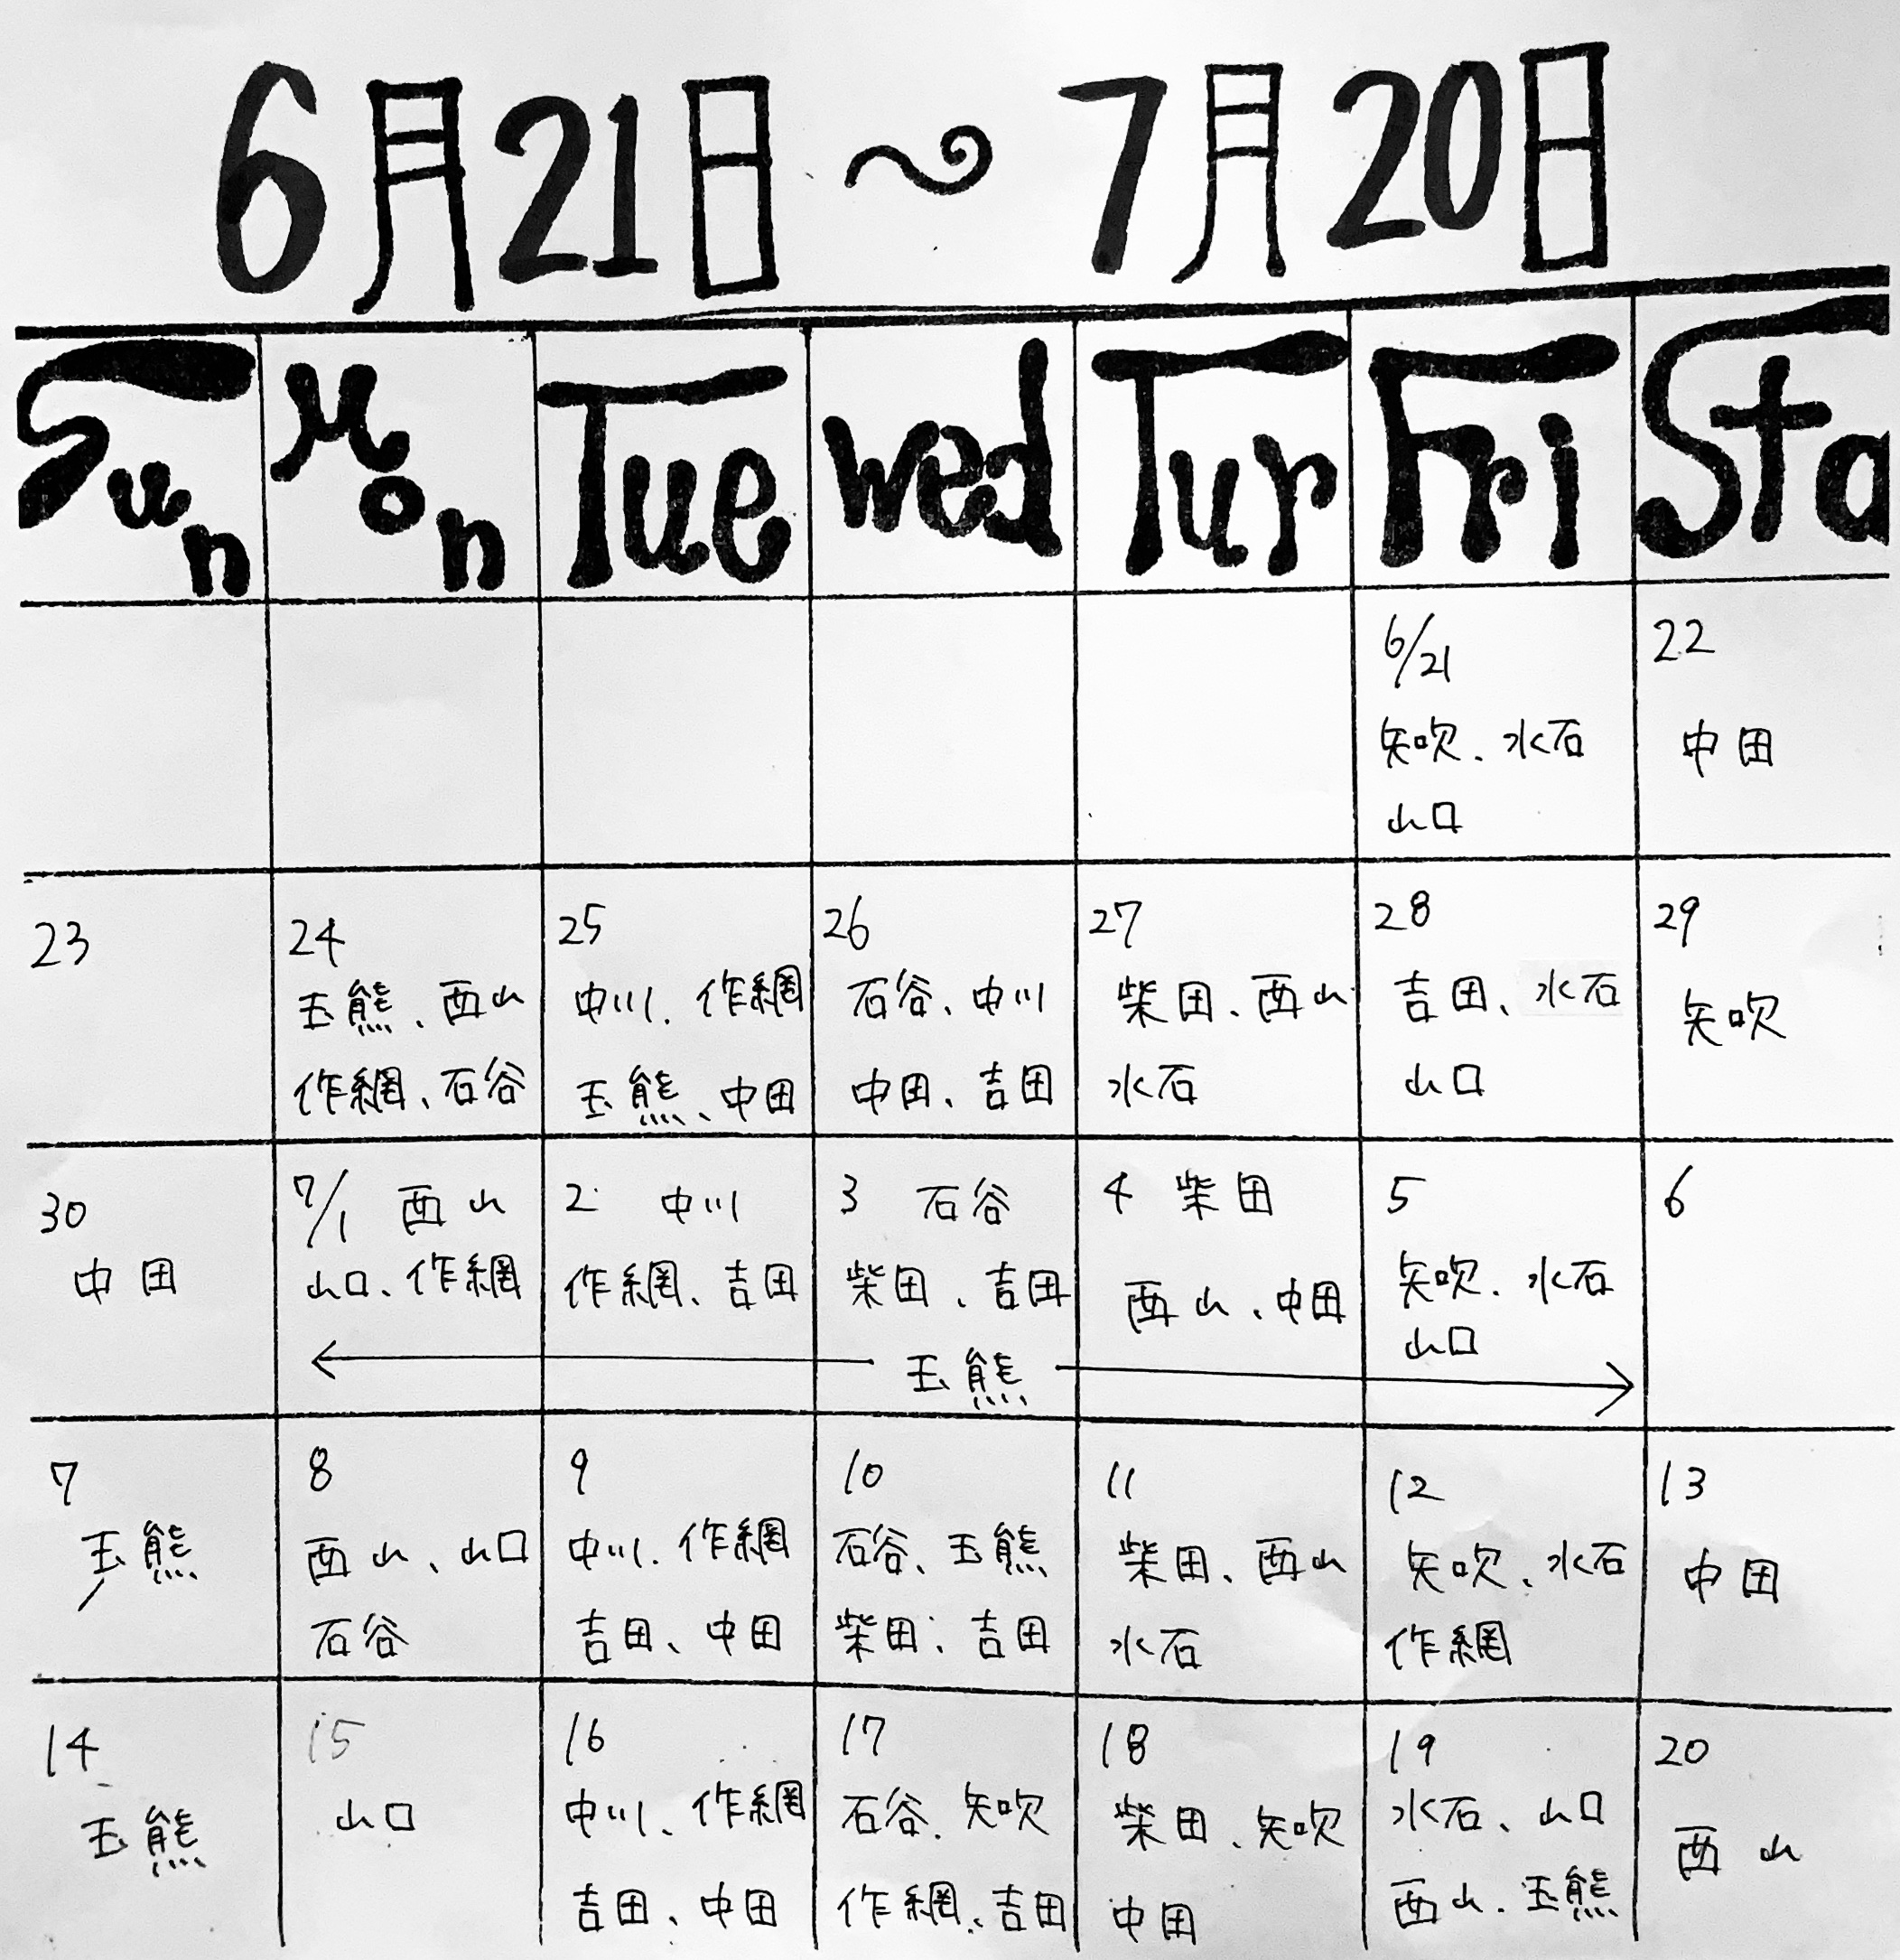 6月21日 〜 7月20日
Sun Mon Tue Wed Tur Fri Sta
6/21
矢吹、水石
山口
22
中田
23
24
玉熊、西山
作網、石谷
25
中川、作網
玉熊、中田
26
石谷、中川
中田、吉田
27
柴田、西山
水石
28
吉田、水石
山口
29
矢吹
30
中田
7/1 西山
山口、作網
2 中川
作網、吉田
3 石谷
柴田、吉田
4 柴田
西山、中田
5
矢吹、水石
山口
6
玉熊
7
玉熊
8
西山、山口
石谷
9
中川、作網
吉田、中田
10
石谷、玉熊
柴田、吉田
11
柴田、西山
水石
12
矢吹、水石
作網
13
中田
14
玉熊
15
山口
16
中川、作網
吉田、中田
17
石谷、矢吹
作網、吉田
18
柴田、矢吹
中田
19
水石、山口
西山、玉熊
20
西山